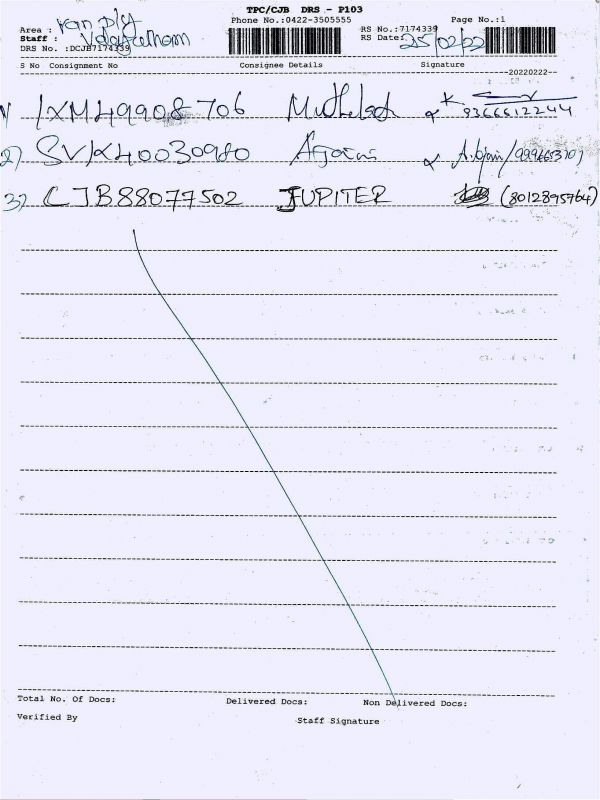 TPC/CJB DRS - P103
Phone No.:0422-3505555 Page No.:1
Area :
Staff : RS No.:7174339
DRS No. :DCJB7174339 RS Date: 25/02/22
S No Consignment No Consignee Details Signature
--20220222--
1) IXM49908706 9366612244
2) SVK40030980
3) CJB88077502 JUPITER (8012895764)
Total No. Of Docs: Delivered Docs: Non Delivered Docs:
Verified By Staff Signature